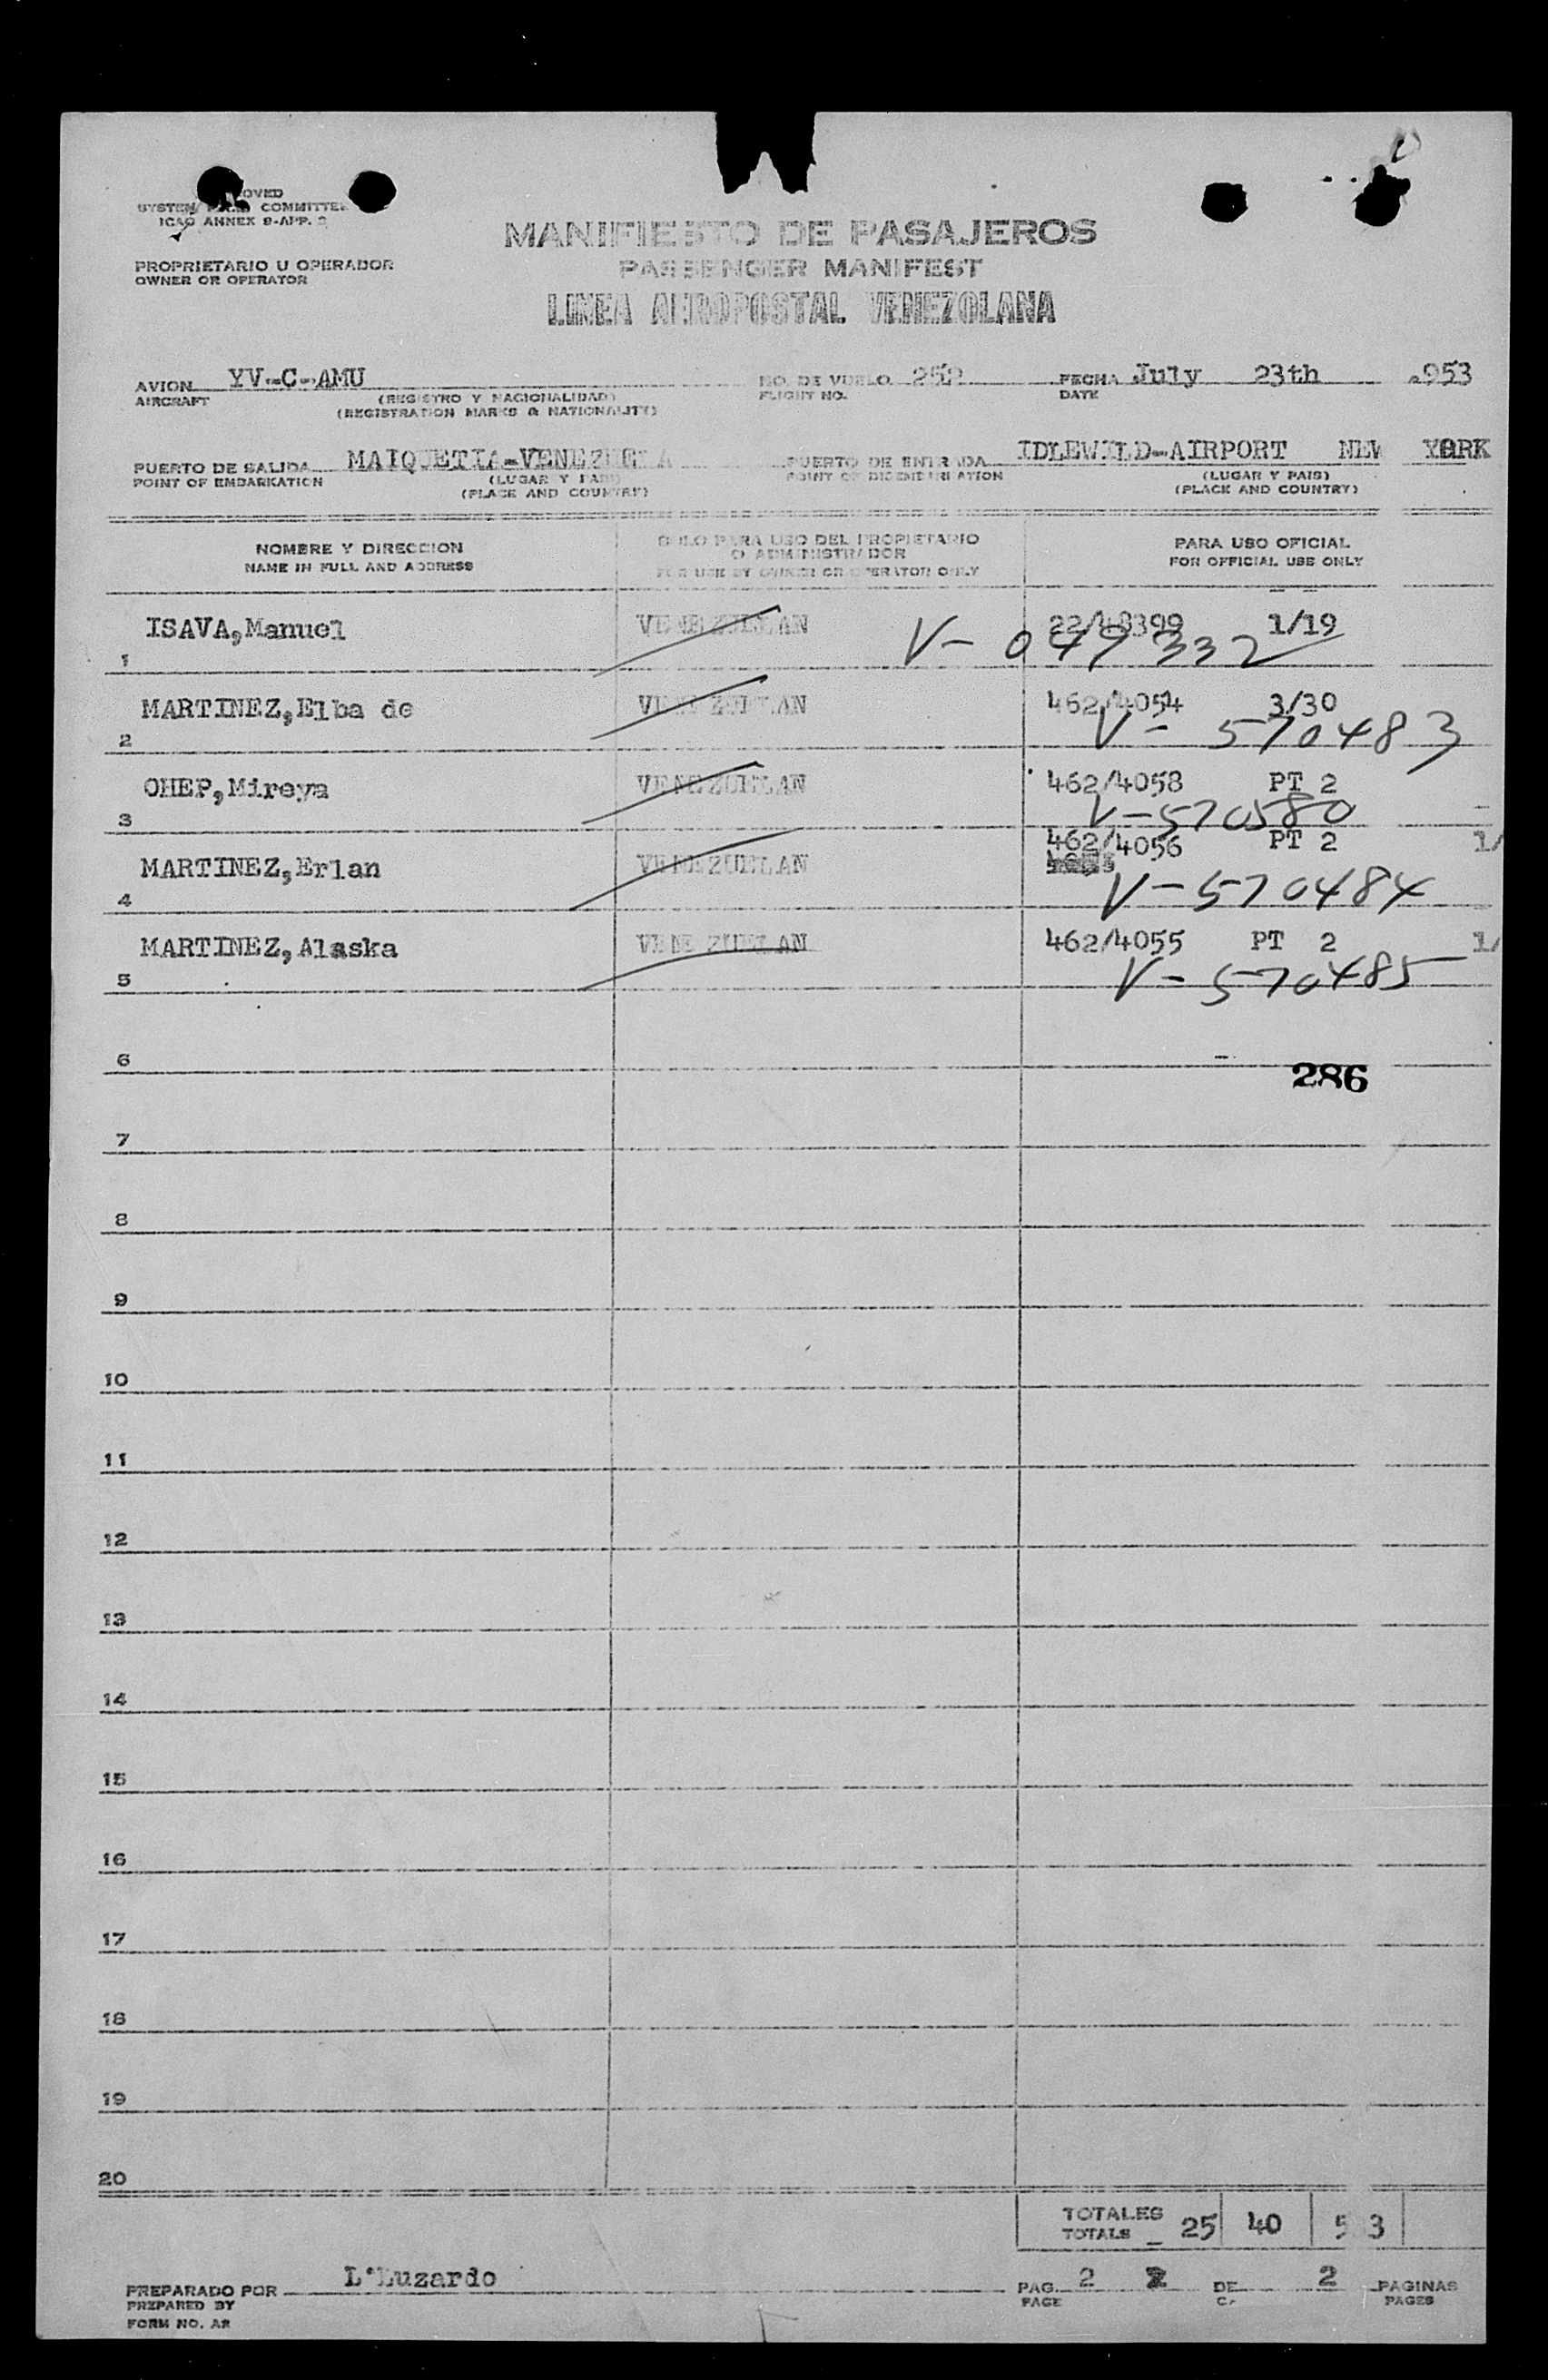 SYSTEM COMMITTEE
ICAO ANNEX 9-APP. 2
MANIFIESTO DE PASAJEROS
PROPRIETARIO U OPERADOR
OWNER OR OPERATOR
PASSENGER MANIFEST
LINEA AEROPOSTAL VENEZOLANA
AVION YV-C-AMU NO. DE VUELO FECHA July 23th 953
AIRCRAFT (REGISTRO Y NACIONALIDAD) FLIGHT NO. DATE
(REGISTRATION MARKS & NATIONALITY)
PUERTO DE SALIDA MAIQUETIA-VENEZUELA PUERTO DE ENTRADA IDLEWILD-AIRPORT NEW YORK
POINT OF EMBARKATION (LUGAR Y PAIS) POINT OF DISEMBARKATION (LUGAR Y PAIS)
(PLACE AND COUNTRY) (PLACE AND COUNTRY)
NOMBRE Y DIRECCION SOLO PARA USO DEL PROPIETARIO PARA USO OFICIAL
O ADMINISTRADOR
NAME IN FULL AND ADDRESS FOR USE BY OWNER OR OPERATOR ONLY FOR OFFICIAL USE ONLY
ISAVA,Manuel VENEZUELAN 22/48399 1/19
1 V-049332
MARTINEZ,Elba de VENEZUELAN 462/4054 3/30
2 V-570483
OHEP,Mireya VENEZUELAN 462/4058 PT 2
3 V-570580
462/4056 PT 2 1/
MARTINEZ,Erlan VENEZUELAN
4 V-570484
MARTINEZ,Alaska VENEZUELAN 462/4055 PT 2 1/
5 V-570485
6
286
7
8
9
10
11
12
13
14
15
16
17
18
19
20
TOTALES
TOTALS 25 40 5 3
PREPARADO POR L'Luzardo PAG. 2 2 DE 2 PAGINAS
PREPARED BY PAGE PAGES
FORM NO. AR